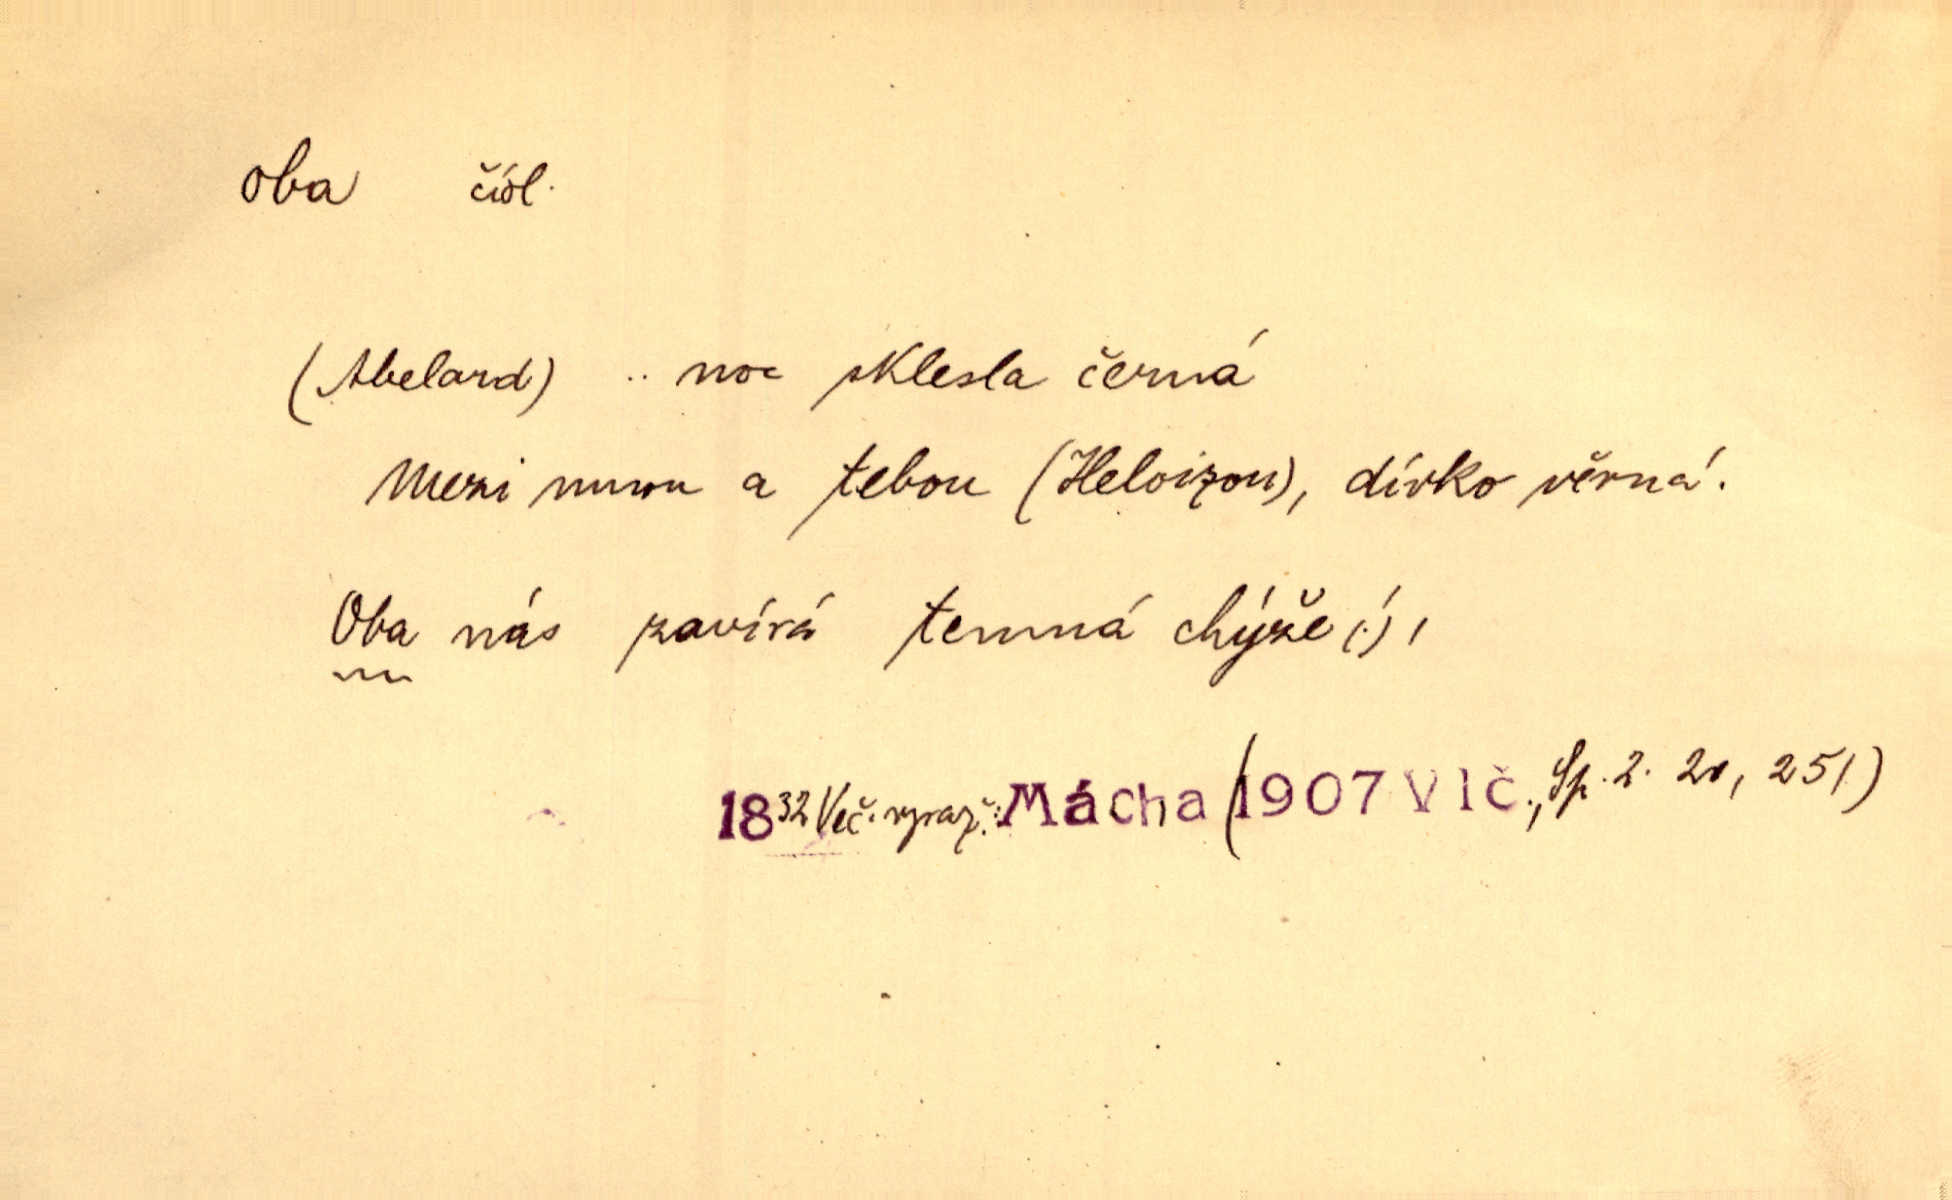 oba čísl.
(Abelard) .. noc sklesla černá
Mezi mnou a tebou (Heloizou), dívko věrná.
Oba nás zavírá temná chýže (.),
1832 Več. vyraž.: Mácha (1907 Vlč., Sp. 2. 20, 251)